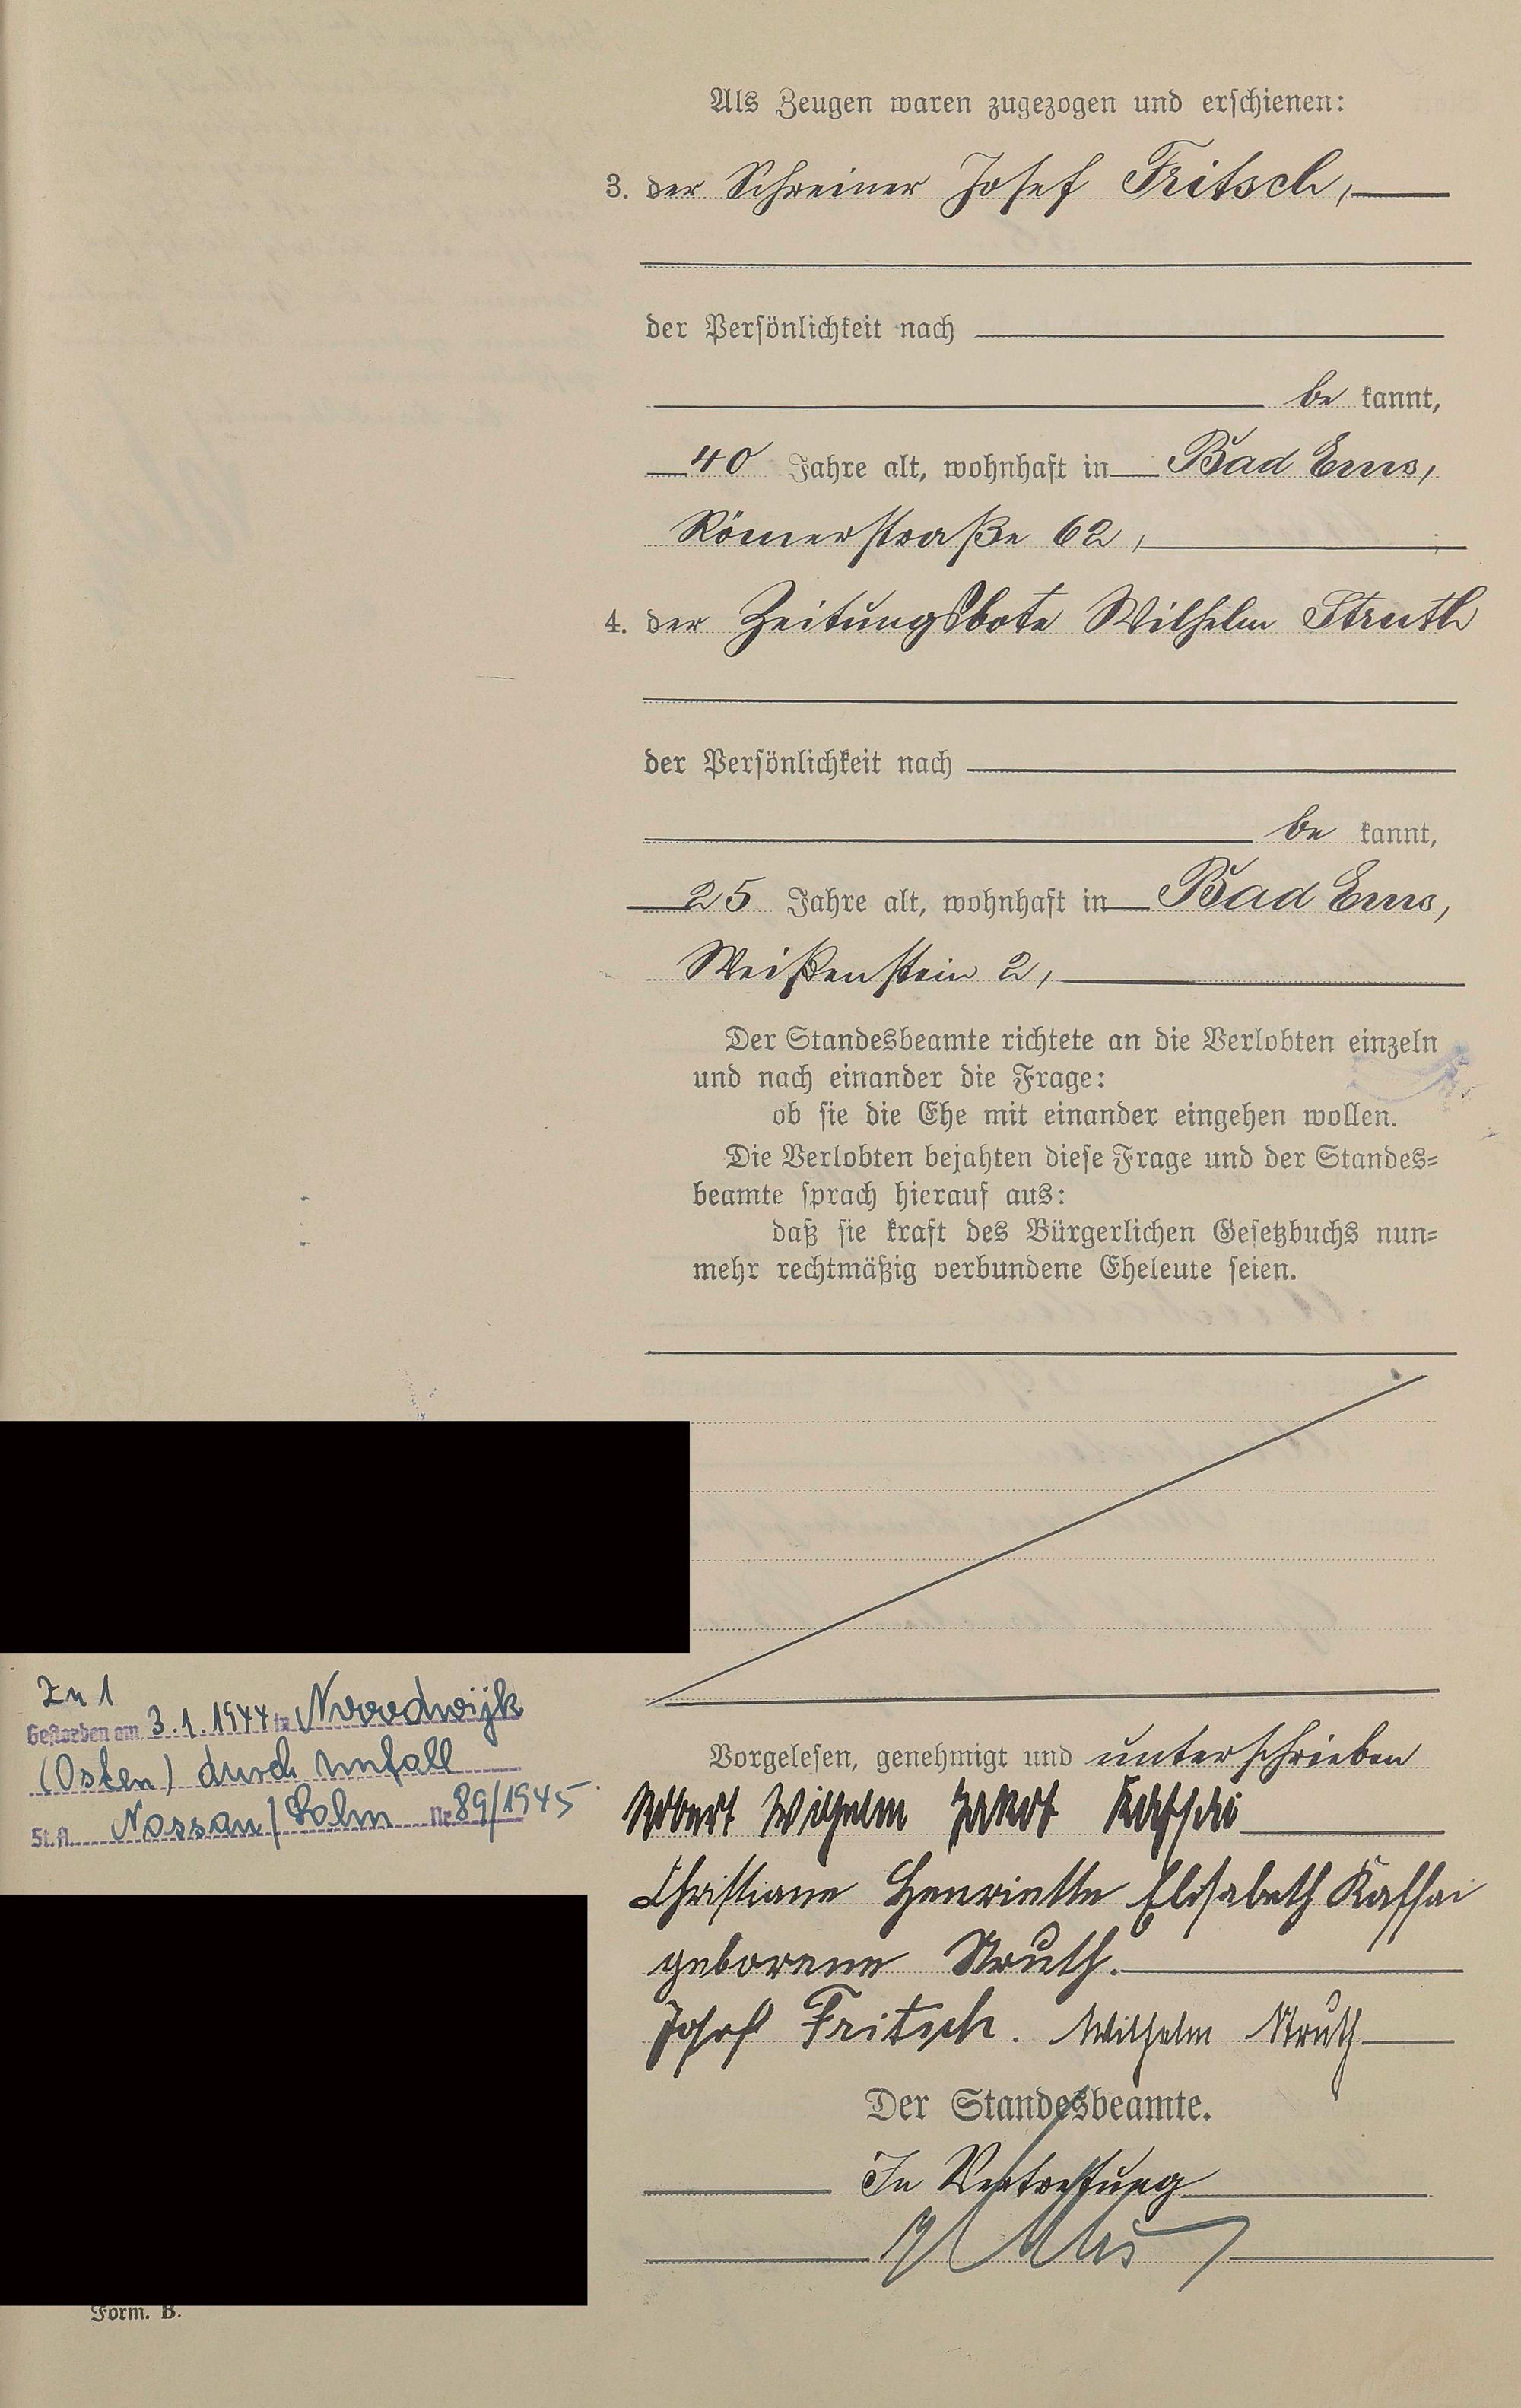 Als Zeugen waren zugezogen und erschienen:
3. der Schreiner Josef Fritsch,
der Persönlichkeit nach
be kannt,
40 Jahre alt, wohnhaft in Bad Ems,
Römerstraße 62,
4. der Zeitungsbote Wilhelm Struth
der Persönlichkeit nach
be kannt,
25 Jahre alt, wohnhaft in Bad Ems,
Weißenstein 2,
Der Standesbeamte richtete an die Verlobten einzeln
und nach einander die Frage:
ob sie die Ehe mit einander eingehen wollen.
Die Verlobten bejahten diese Frage und der Standes=
beamte sprach hierauf aus:
daß sie kraft des Bürgerlichen Gesetzbuchs nun=
mehr rechtmäßig verbundene Eheleute seien.
Zu 1
Gestorben am 3.1.1944 in Noordwijk
(Osten) durch Unfall
St.A. Nassau/Lahn Nr. 89/1945
Vorgelesen, genehmigt und unterschrieben
Robert Wilhelm Jakob Kaffai
Christiane Henriette Elisabeth Kaffai
geborene Struth.
Josef Fritsch. Wilhelm Struth
Der Standesbeamte.
In Vertretung
Form. B.